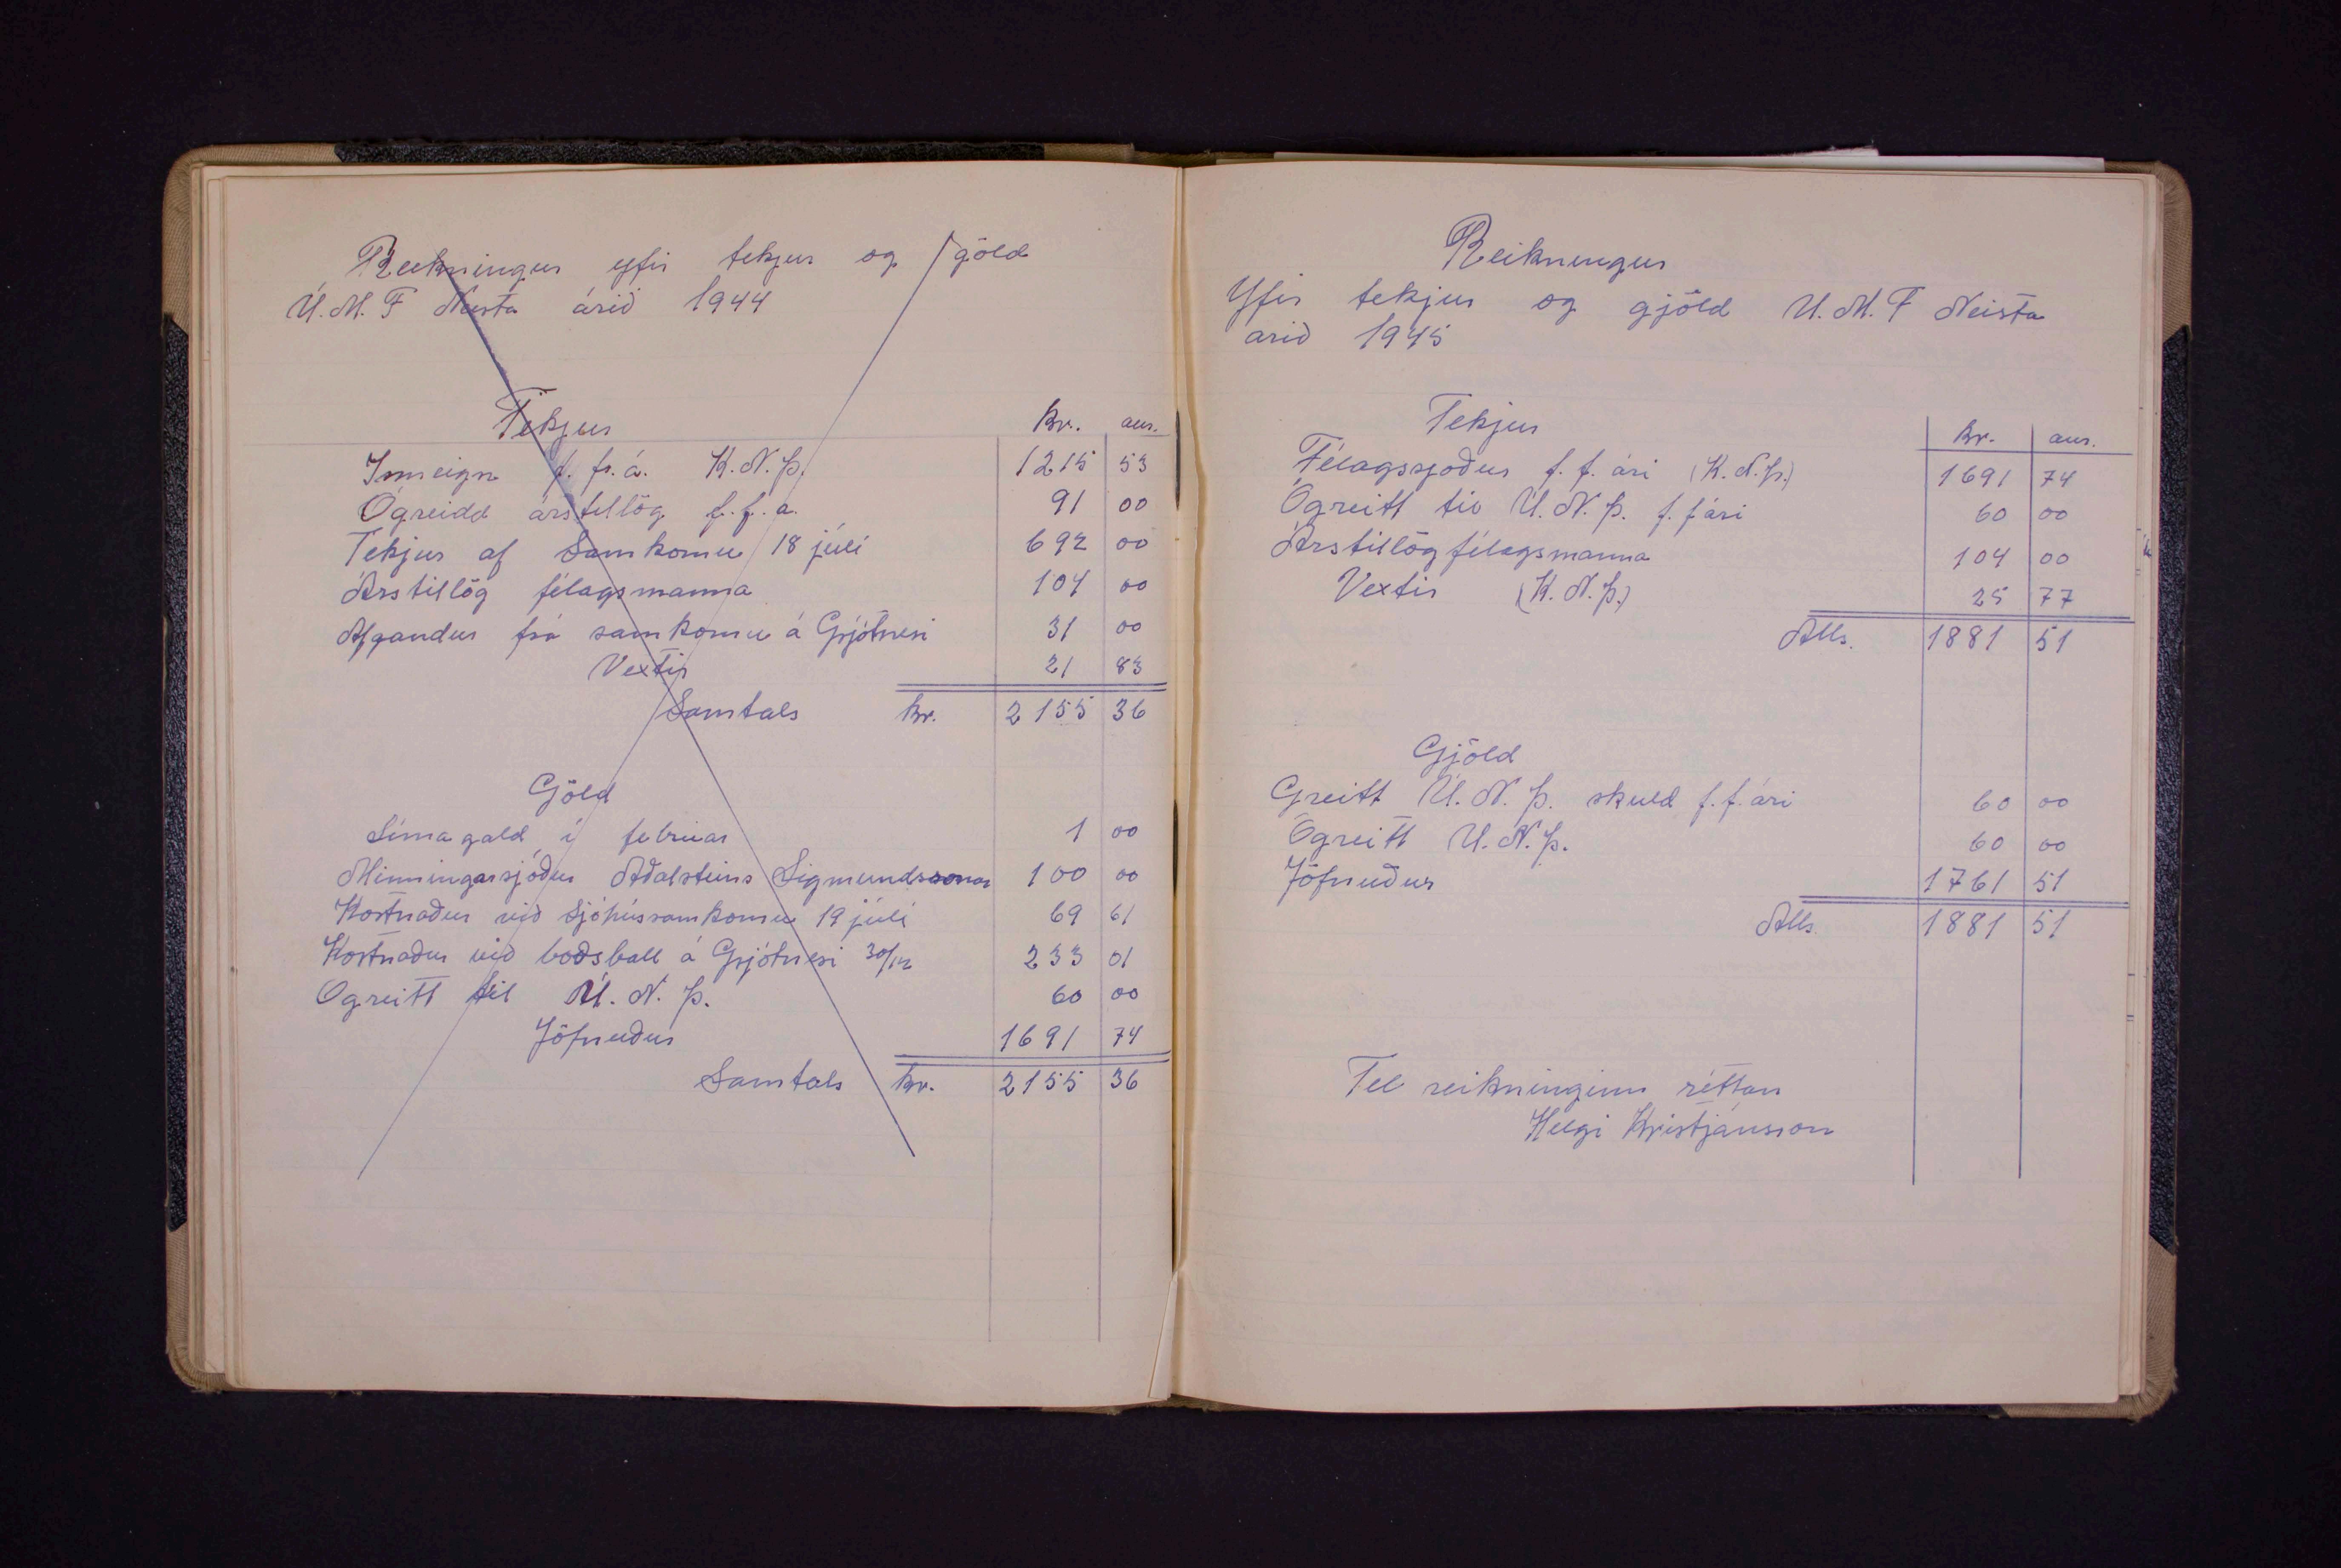 Reikningur yfir tekjur og gjöld
U.M.F Neista árið 1944
Tekjur kr. aur.
Inneign f. fr. á. K.N.Þ. 1215 53
Ógreidd árstillög f.f.á. 91 00
Tekjur af Samkomu 18 júlí 692 00
Árstillög félagsmanna 104 00
Afgandur frá samkomu á Grjótnesi 31 00
Vextir 21 83
Samtals kr. 2155 36
Gjöld
Símagald í februar 1 00
Minningarsjóður Aðalsteins Sigmundssonar 100 00
Kostnaður við Sjóhússamkomu 19 júlí 69 61
Kostnaður við boðsball á Grjótnesi 30/12 233 01
Ogreitt til U.N.Þ. 60 00
Jöfnuður 1691 74
Samtals kr. 2155 36
Reikningur
Yfir tekjur og gjöld U.M.F Neista
arið 1945
Tekjur kr. aur.
Félagssjoður f.f. ári (K.N.Þ.) 1691 74
Ógreitt tiv U.N.Þ. f.f ári 60 00
Árstillög félagsmanna 104 00
Vextir (K.N.Þ.) 25 77
Alls. 1881 51
Gjöld
Greitt U.N.Þ. skuld f.f. ári 60 00
Ógreitt U.N.Þ. 60 00
Jöfnuður 1761 51
Alls 1881 51
Tel reikninginn réttan
Helgi Kristjánsson